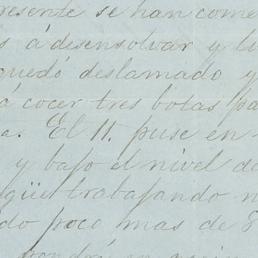 resente se han come
s á desensolvar y li
quedó deslamado y
á cocer tres botas pa
a. El 11. puse en
y bajo el nivel de
güe trabajando n
do poco mas de